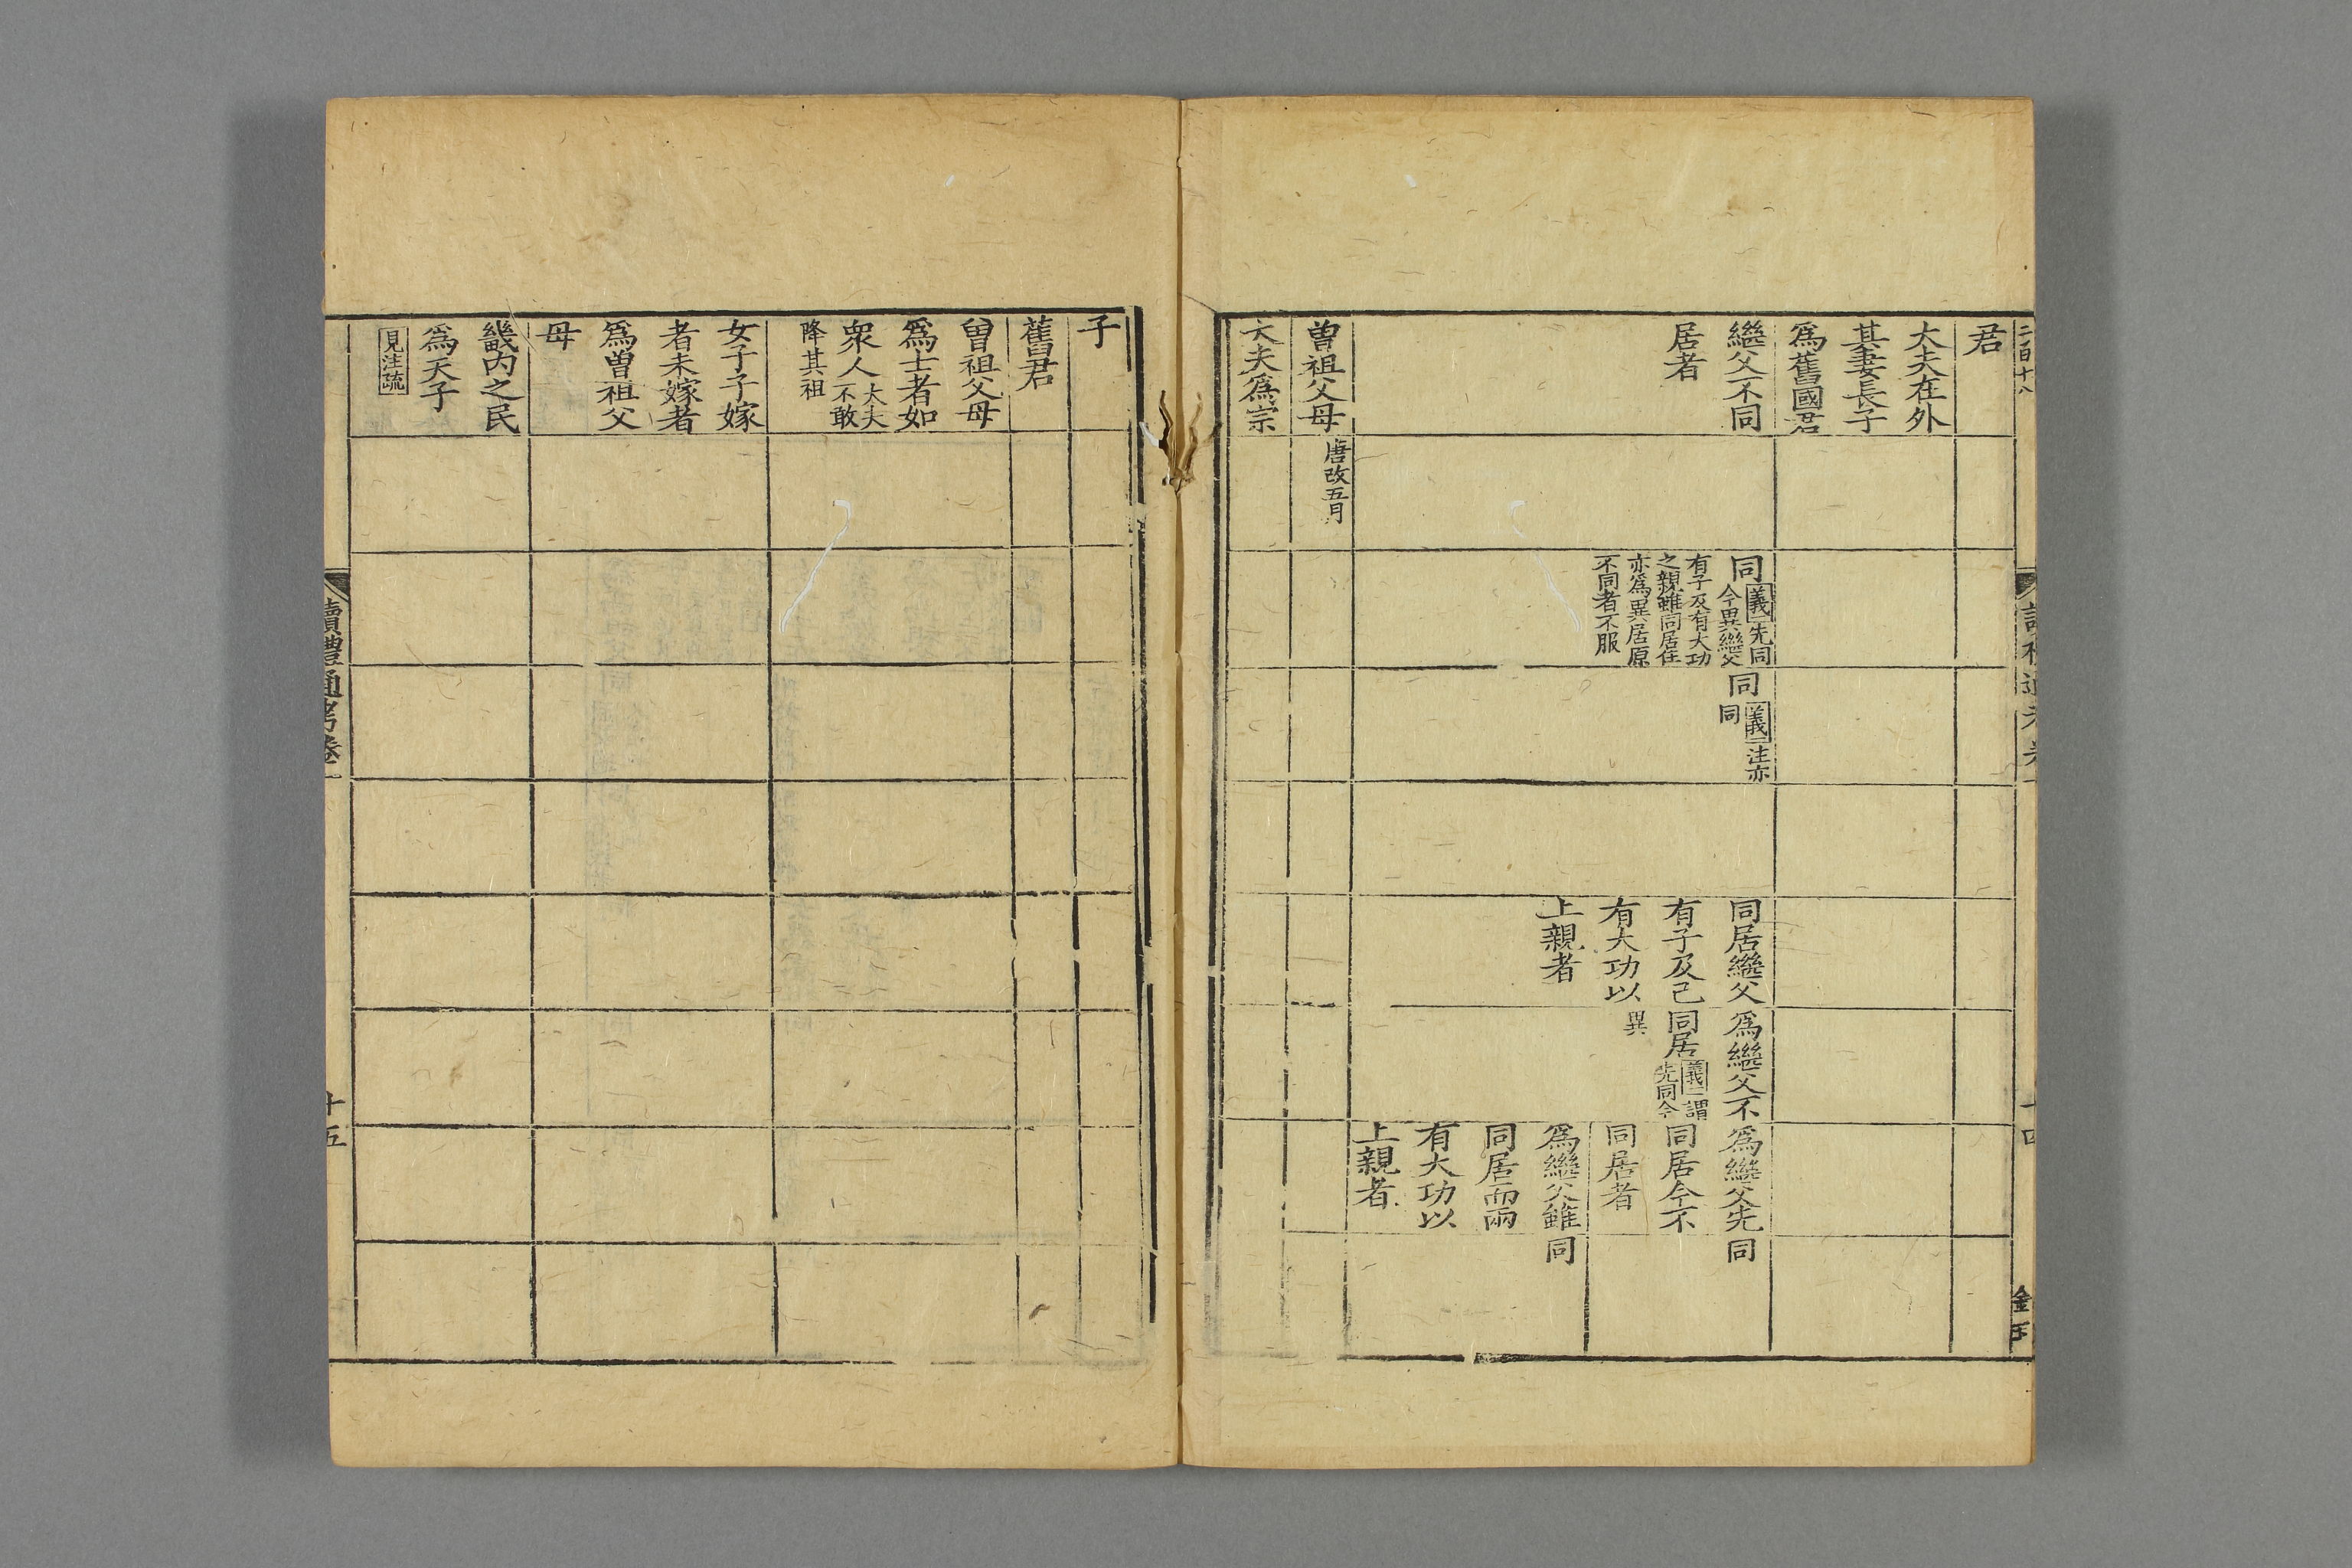 二百十八
君
大夫在外
其妻長子
爲舊國君
繼父不同
居者
同義先同
今異繼父
有子及有大功
之親雖同居住
亦爲異居原
不同者不服
同義注亦
同
同居繼父
有子及己
有大功以
上親者
爲繼父不
同居義謂
先同今
異
爲繼父先
同居今不
同居者
爲繼父雖
同居而兩
有大功以
上親者
同
同
曾祖父母
唐改五月
大夫爲宗
子
舊君
曾祖父母
爲士者如
衆人大夫
不敢
降其祖
女子子嫁
者未嫁者
爲曾祖父
母
畿内之民
爲天子
見注疏
讀禮通考卷
十五